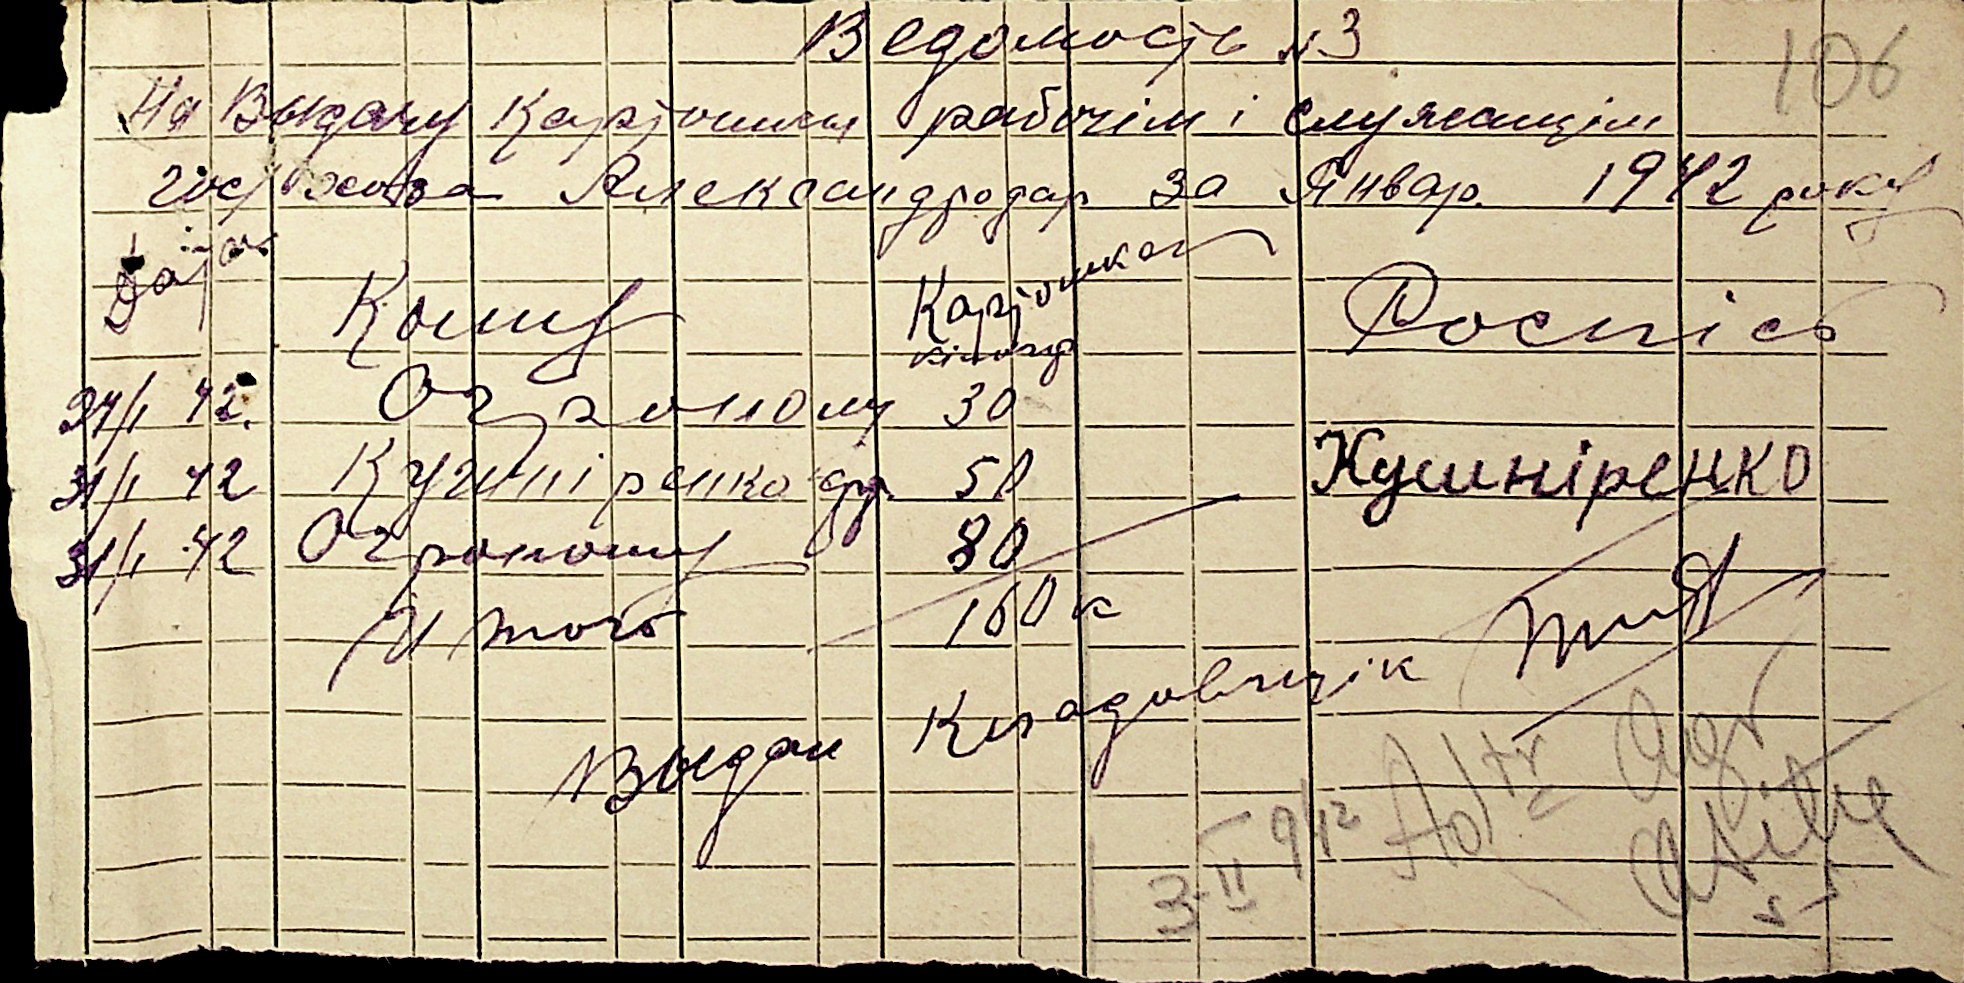 Ведомость №3
106
На Выдачу Картошки рабочім і служащім
госхоза Александродар за Январ. 1942 року
Дата Кому Картошка кілогр Роспісь
24/I 42. Огрономu 30
31/I 42 Кушніренко др 50 Кушніренко
31/I 42 Огроному 80
Итого 160 к
Выдал Кладовщик
3-II 942